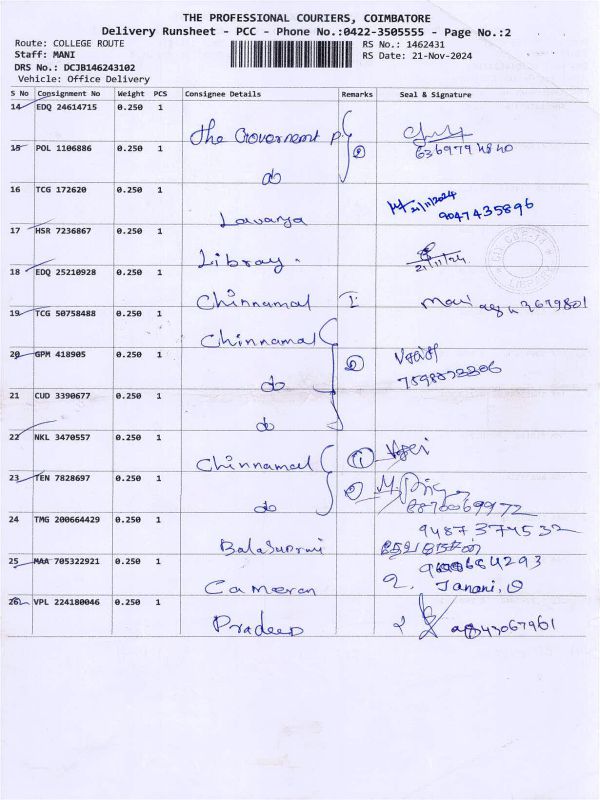 THE PROFESSIONAL COURIERS, COIMBATORE
Delivery Runsheet - PCC - Phone No.:0422-3505555 - Page No.:2
Route: COLLEGE ROUTE
RS No.: 1462431
Staff: MANI
RS Date: 21-Nov-2024
DRS No.: DCJB146243102
Vehicle: Office Delivery
S No Consignment No Weight PCS Consignee Details Remarks Seal & Signature
14 EDQ 24614715 0.250 1 The Government P.
15 POL 1106886 0.250 1 do 2
16 TCG 172620 0.250 1 Lavanya 21/11/2024 9047435896
17 HSR 7236867 0.250 1 Library. 21/11/24
18 EDQ 25210928 0.250 1 Chinnamal 1
19 TCG 50758488 0.250 1 Chinnamal
20 GPM 418905 0.250 1 do 2
21 CUD 3390677 0.250 1 do
22 NKL 3470557 0.250 1 Chinnamal 1
23 TEN 7828697 0.250 1 do
24 TMG 200664429 0.250 1 9487374532
25 MAA 705322921 0.250 1 Cameran Janani
26 VPL 224180046 0.250 1 Pradeep